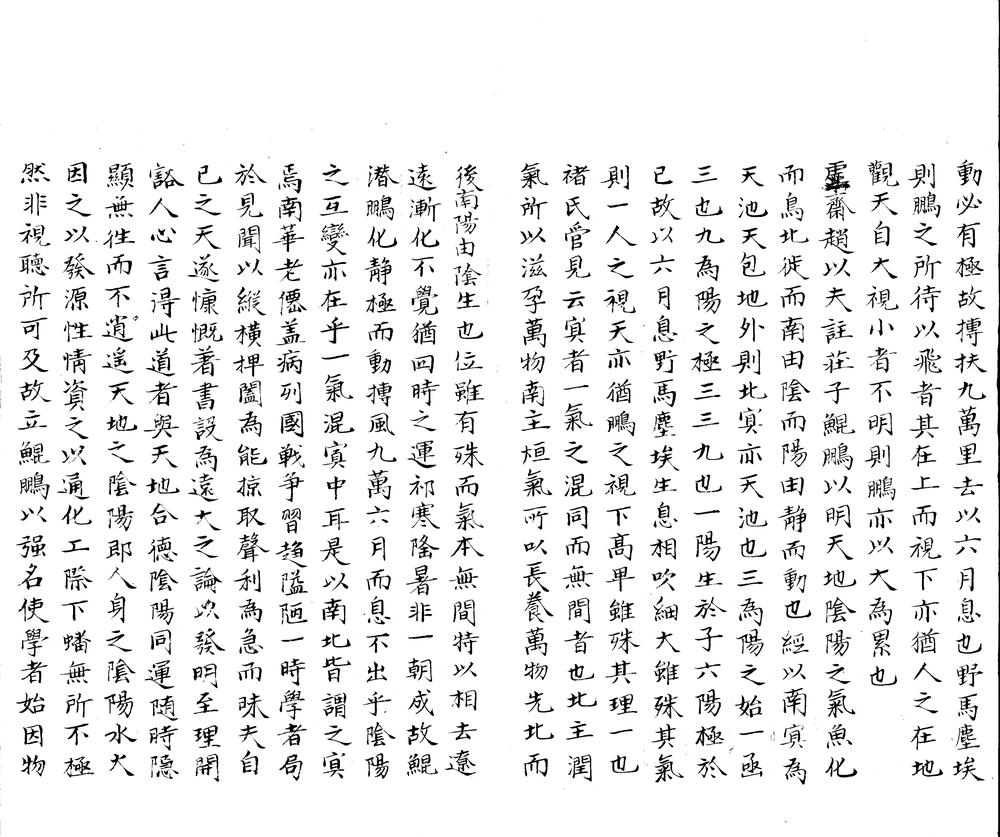 動必有極故摶扶九萬里去以六月息也野馬塵埃
則鵬之所待以飛者其在上而視下亦猶人之在地
觀天自大視小者不明則鵬亦以大為累也
虛齋趙以夫註莊子鯤鵬以明天地陰陽之氣魚化
而鳥北徙而南由陰而陽由静而動也經以南㝠為
天池天包地外則北㝠亦天池也三為陽之始一函
三也九為陽之極三三九也一陽生於子六陽極於
已故以六月息野馬塵埃生息相吹細大雖殊其氣
則一人之視天亦猶鵬之視下髙卑雖殊其理一也
褚氏管見云㝠者一氣之混同而無間者也北主潤
氣所以滋孕萬物南主烜氣所以長養萬物先北而
後南陽由陰生也位雖有殊而氣本無間特以相去遼
遠漸化不覺猶四時之運祁寒隆暑非一朝成故鯤
潜鵬化静極而動摶風九萬六月而息不出乎陰陽
之互變亦在乎一氣混㝠中耳是以南北皆謂之㝠
焉南華老僊盖病列國戦争習趋隘陋一時學者局
於見聞以縱橫捭闔為能掠取聲利為急而昧夫自
已之天遂慷慨著書設為遠大之論以發明至理開
豁人心言得此道者與天地合德陰陽同運随時隠
顯無徃而不逍遥天地之陰陽即人身之陰陽水火
因之以發源性情資之以通化上際下蟠無所不極
然非視聽所可及故立鯤鵬以强名使學者始因物